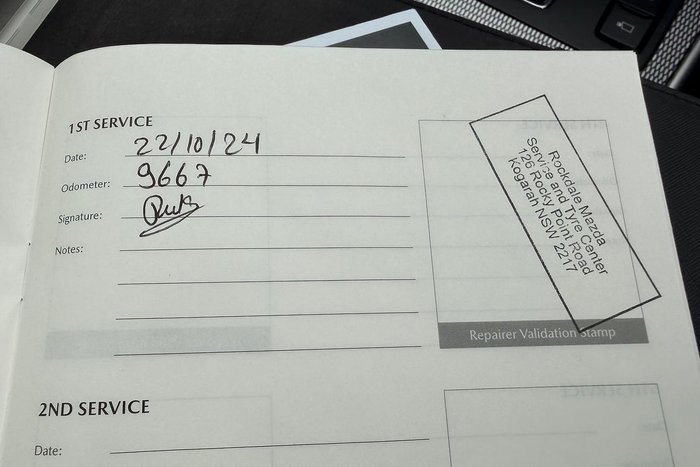 1ST SERVICE
Date: 22/10/24
Odometer: 9667
Signature:
Notes:
Rockdale Mazda
Service and Tyre Center
126 Rocky Point Road
Kogarah NSW 2217
Repairer Validation Stamp
2ND SERVICE
Date: